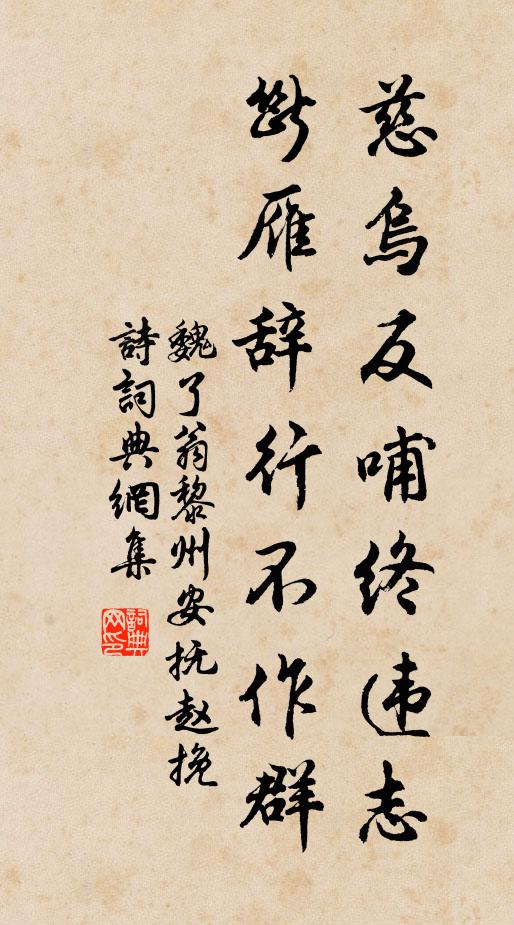 慈烏反哺终违志
斷雁辞行不作群
魏了翁黎州安抚赵挽
詩詞典網集
詞典网印